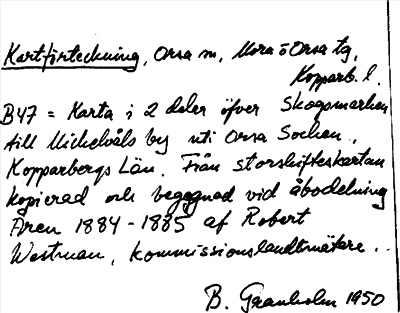 Kartförteckning, Orsa sn, Mora o Orsa tg,
Kopparb. l.
B47 = Karta i 2 delar öfver Skogsmarken
till Mickelvåls by uti Orsa Socken.,
Kopparbergs Län. Från storskifteskartan
kopierad och begagnad vid åbodelning
Åren 1884-1885 af Robert
Westman, kommissionslandtmätare..
B. Granholm 1950